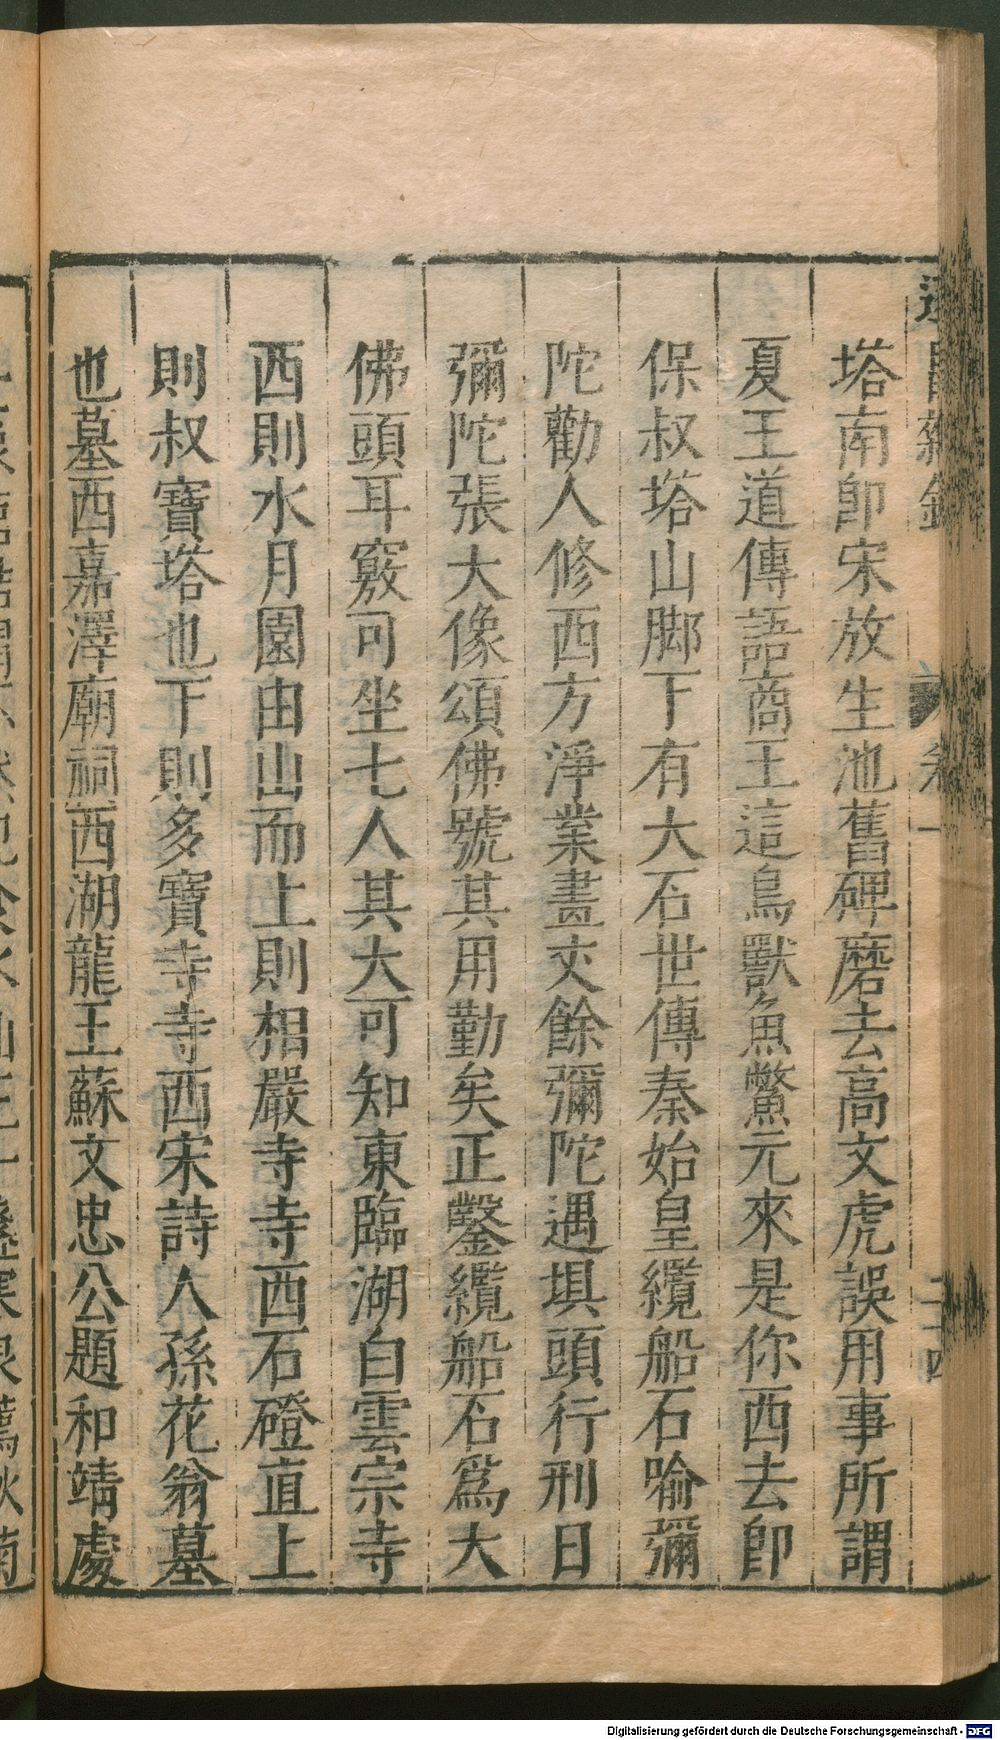 塔南即宋放生池舊碑磨去高文虎誤用事所謂
夏王道傳語商王這鳥獸魚鱉元來是你西去即
保叔塔山脚下有大石世傳秦始皇纜船石喻彌
陀勸人修西方淨業畫丈餘彌陀遇惧頭行刑日
彌陀張大像頌佛號其用勤矣正鑿纜船石爲大
佛頭耳竅可坐七人其大可知東臨湖白雲宗寺
西則水月園由山而上則相嚴寺寺西石磴直上
則叔寶塔也下則多寶寺寺西宋詩人孫花翁墓
也墓西嘉澤廟祠西湖龍王蘇文忠公題和靖處
Digitalisierung gefördert durch die Deutsche Forschungsgemeinschaft - DFG